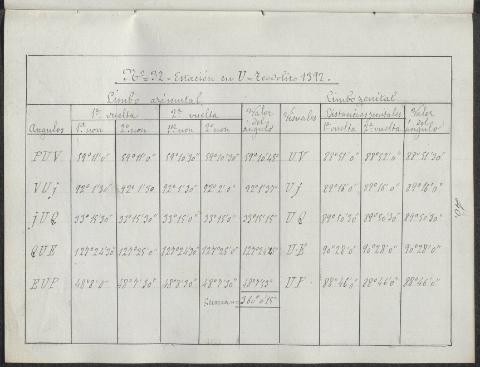 Nº 92 - Estación en U - Teodolito 1312.
Limbo azimutal Limbo zenital
1ª vuelta 2ª vuelta Valor del ángulo Visuales Distancias zenitales Valor del ángulo
Angulos 1º non 2º non 1º non 2º non 1ª vuelta 2ª vuelta
PUV 59°11'0" 59°11'0" 59°10'30" 59°10'30" 59°10'45" UV 88°51'0" 88°52'0" 88°51'30"
VUj 92°1'30" 92°1'30 92°1'30" 92°2'0" 92°1'37" Uj 89°16'0" 89°16'0" 89°16'0"
jUQ 33°15'30" 33°15'30" 33°15'0" 33°15'0" 33°15'15 UQ 89°50'30" 89°50'30" 89°50'30"
QUE 127°24'30" 127°25'0" 127°24'30" 127°25'0" 127°24'45" UE 90°28'0" 90°28'0" 90°28'0"
EUP 48°8'0" 48°7'30" 48°8'30" 48°7'30" UP 88°46'0" 88°46'0" 88°46'0"
Suman 360°0'15"